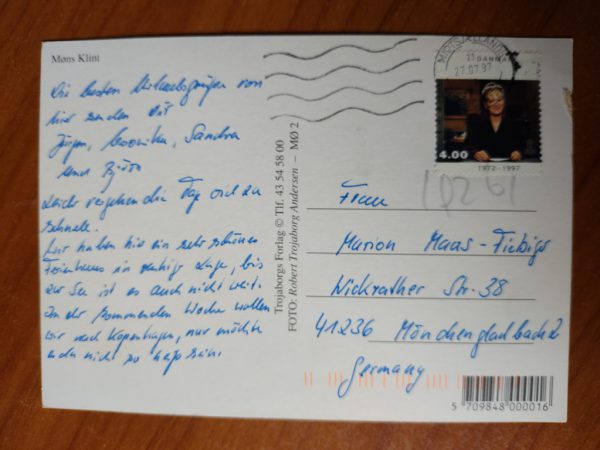 Møns Klint
Die besten Urlaubsgrüßen von
hier senden dir
Jürgen, Sandra
und Björn
Leider vergehen die Tage viel zu
schnell.
Wir haben hier ein sehr schönes
Ferienhaus in ruhige Lage, bis
zur See ist es auch nicht weit.
In der kommenden Woche wollen
wir nach Kopenhagen, nur möchte
es nicht so heiß sein.
Trojaborgs Forlag © Tlf. 43 54 58 00
FOTO: Robert Trojaborg Andersen – MØ 2
MIDTSJÆLLAND
27.07.97
DANMARK
4.00
1972-1997
Frau
Marion Maas-Fiebiger
Wickrather Str. 38
41236 Mönchengladbach 2
Germany
5 709848 000016